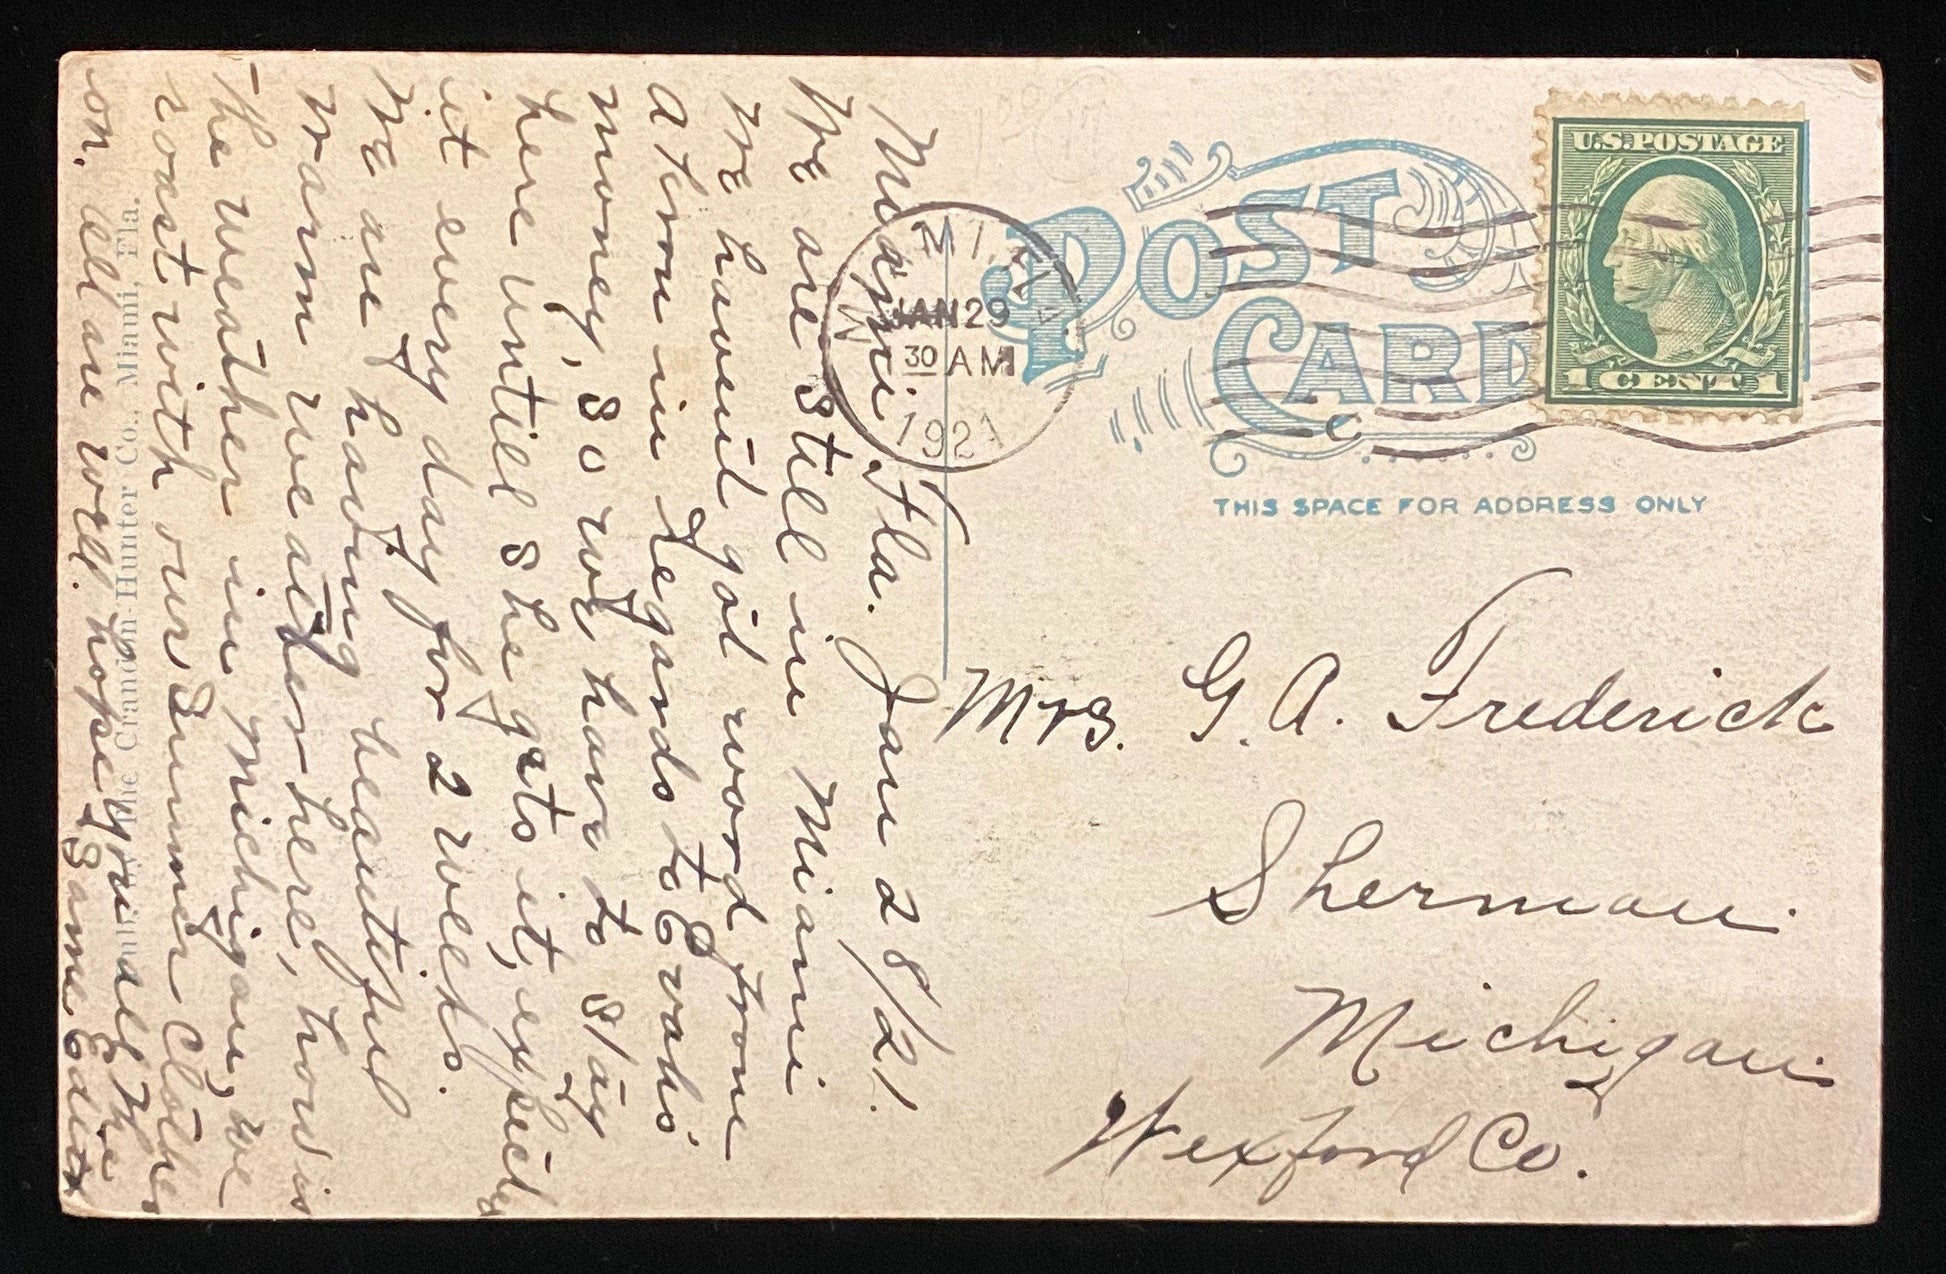 Miami, Fla. Jan 28/21.
We are still in Miami
We havent got word from
Atron in regards to Evahs
money, so we have to stay
here untill she gets it, expects
it every day for 2 weeks.
We are having beautiful
warm weather here, how is
the weather in Michigan, we
roast with our Summer Clothes
on. All are well. hope you all the
Same, Edith
The Crandon-Hunter Co., Miami, Fla.
POST
CARD
THIS SPACE FOR ADDRESS ONLY
MIAMI, FLA.
JAN 29
30 AM
1921
U.S. POSTAGE
1 CENT 1
Mrs. G. A. Frederick
Sherman.
Michigan.
Wexford Co.